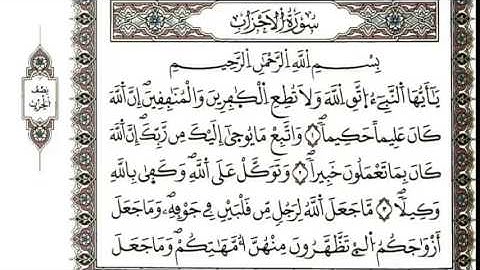 سُورَةُ الْأَحْزَابِ
نصف
الحزب
بِسْمِ اللَّهِ الرَّحْمَٰنِ الرَّحِيمِ
يَٰٓأَيُّهَا اَ۬لنَّبِےٓءُ اُ۪تَّقِ اِ۬للَّهَ وَلَا تُطِعِ اِ۬لْكَٰفِرِينَ وَالْمُنَٰفِقِينَۖ إِنَّ اَ۬للَّهَ
كَانَ عَلِيماً حَكِيماًۖ ١ وَاتَّبِعْ مَا يُوح۪يٰٓ إِلَيْكَ مِن رَّبِّكَۖ إِنَّ اَ۬للَّهَ
كَانَ بِمَا تَعْمَلُونَ خَبِيراًۖ ٢ وَتَوَكَّلْ عَلَي اَ۬للَّهِۖ وَكَف۪يٰ بِاللَّهِ
وَكِيلاًۖ ٣ مَّا جَعَلَ اَ۬للَّهُ لِرَجُلٖ مِّن قَلْبَيْنِ فِے جَوْفِهِۦۖ وَمَا جَعَلَ
أَزْوَٰجَكُمُ اُ۬لَّٰٓےِ تَظَّهَّرُونَ مِنْهُنَّ أُمَّهَٰتِكُمْۖ وَمَا جَعَلَ